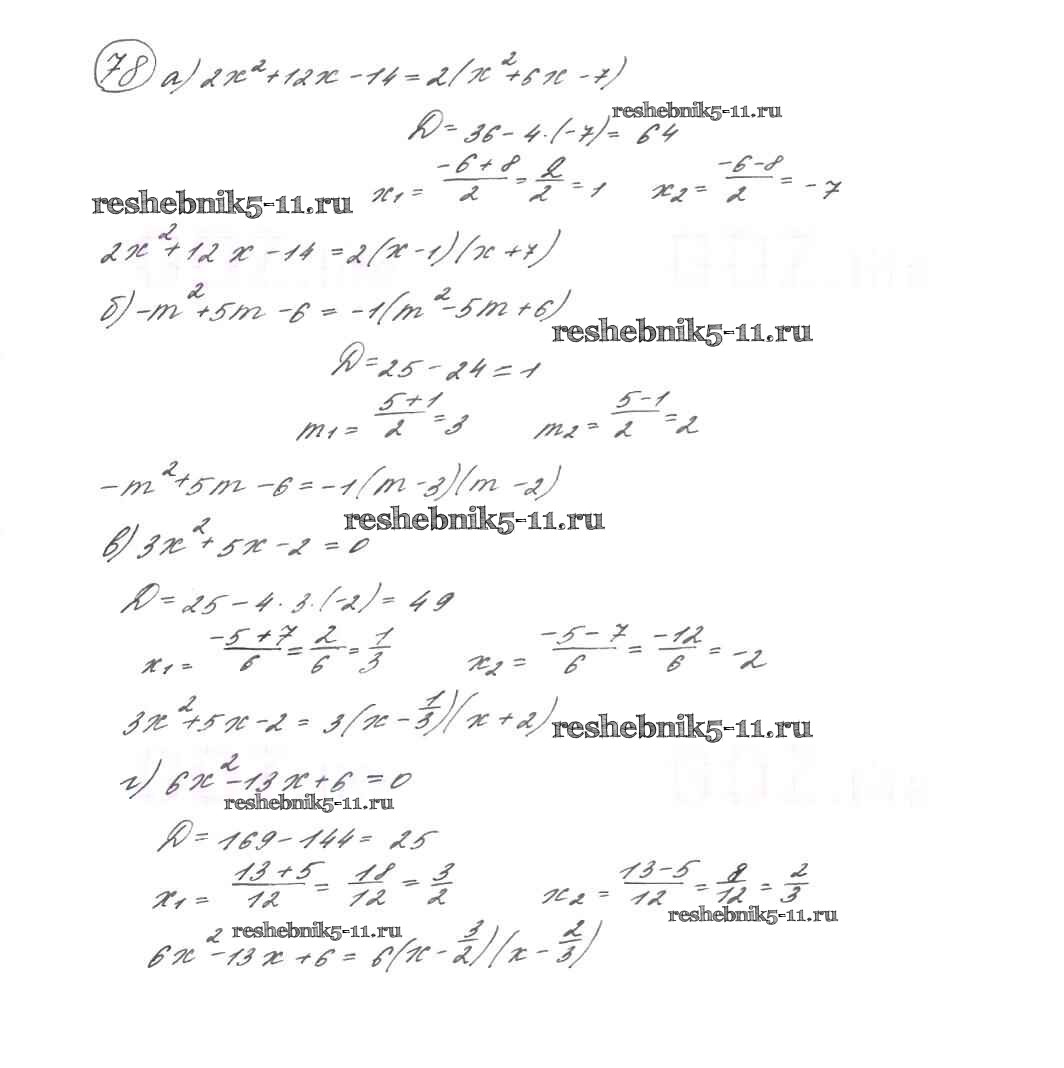 78 а) 2x²+12x-14=2(x²+6x-7)
reshebnik5-11.ru
D=36-4·(-7)=64
x₁=(-6+8)/2=2/2=1 x₂=(-6-8)/2=-7
reshebnik5-11.ru
2x²+12x-14=2(x-1)(x+7)
б) -m²+5m-6=-1(m²-5m+6)
reshebnik5-11.ru
D=25-24=1
m₁=(5+1)/2=3 m₂=(5-1)/2=2
-m²+5m-6=-1(m-3)(m-2)
reshebnik5-11.ru
в) 3x²+5x-2=0
D=25-4·3·(-2)=49
x₁=(-5+7)/6=2/6=1/3 x₂=(-5-7)/6=-12/6=-2
3x²+5x-2=3(x-1/3)(x+2)
reshebnik5-11.ru
г) 6x²-13x+6=0
reshebnik5-11.ru
D=169-144=25
x₁=(13+5)/12=18/12=3/2 x₂=(13-5)/12=8/12=2/3
reshebnik5-11.ru
reshebnik5-11.ru
6x²-13x+6=6(x-3/2)(x-2/3)